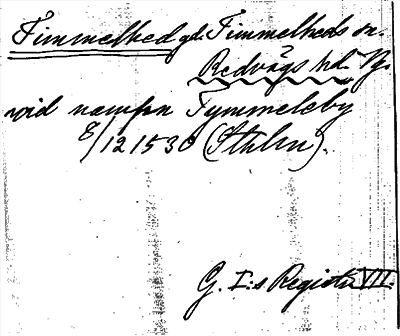 Timmelhed gd. Timmelheds sn.
Redvägs hd. Vg.
vid nampn Tymmeleby
8/12 1530 (Sthlm).
G. I:s Registr. VII.